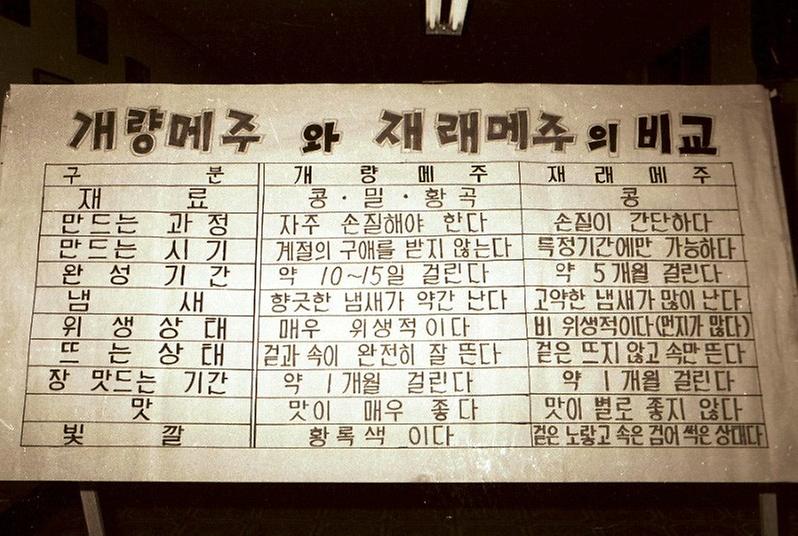 개량메주 와 재래메주의 비교
구 분 개 량 메 주 재 래 메 주
재 료 콩·밀·황곡 콩
만드는 과정 자주 손질해야 한다 손질이 간단하다
만드는 시기 계절의 구애를 받지 않는다 특정기간에만 가능하다
완성기간 약 10~15일 걸린다 약 5개월 걸린다
냄 새 향긋한 냄새가 약간 난다 고약한 냄새가 많이 난다
위생상태 매우 위생적이다 비 위생적이다(먼지가 많다)
뜨는상태 겉과 속이 완전히 잘 뜬다 겉은 뜨지 않고 속만 뜬다
장 맛드는 기간 약 1개월 걸린다 약 1개월 걸린다
맛 맛이 매우 좋다 맛이 별로 좋지 않다
빛 깔 황록색 이다 겉은 노랗고 속은 검어 썩은 상태다